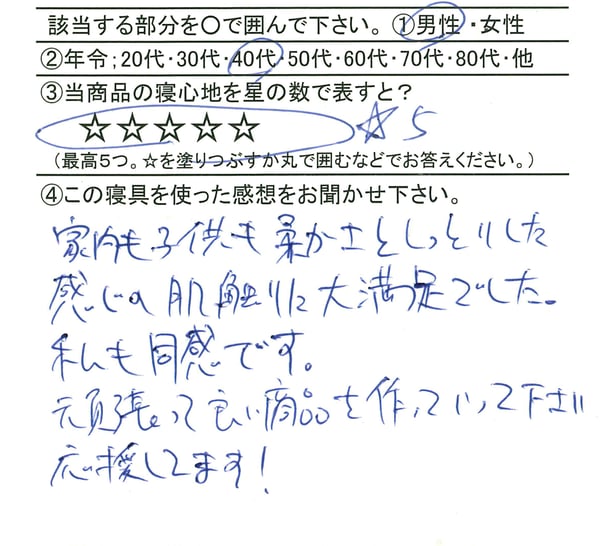 該当する部分を○で囲んで下さい。①男性・女性
②年令;20代・30代・40代・50代・60代・70代・80代・他
③当商品の寝心地を星の数で表すと?
☆☆☆☆☆ ☆5
(最高5つ。☆を塗りつぶすか丸で囲むなどでお答えください。)
④この寝具を使った感想をお聞かせ下さい。
家内も子供も柔かさとしっとりした
感じの肌触りに大満足でした。
私も同感です。
頑張って良い商品を作っていって下さい
応援してます!